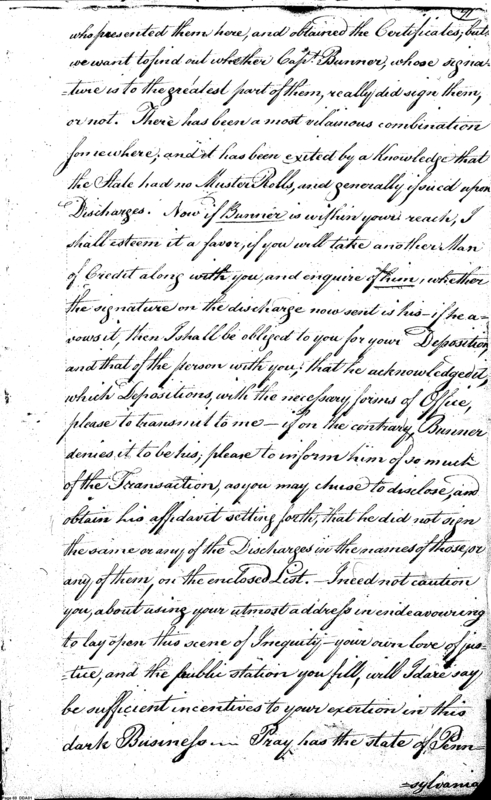 71
who presented them here, and obtained the Certificates, but
we want to find out whether Capt. Bunner, whose signa-
=ture is to the greatest part of them, really did sign them,
or not. There has been a most vilainous combination
somewhere; and it has been exited by a Knowledge that
the State had no Muster Rolls, and generally issued upon
Discharges. Now if Bunner is within your reach, I
shall esteem it a favor, if you will take another Man
of Credit along with you, and enquire of him, whether
the signature on the discharge now sent is his - if he a-
vows it, then I shall be obliged to you for your Deposition,
and that of the person with you; that he acknowledged it,
which Depositions, with the necessary forms of Office,
please to transmit to me - if on the contrary, Bunner
denies it to be his; please to inform him of so much
of the Transaction, as you may chuse to disclose, and
obtain his affidavit setting forth, that he did not sign
the same or any of the Discharges in the names of those, or
any of them, on the enclosed List. - I need not caution
you, about using your utmost address in endeavouring
to lay open this scene of Inequity - your own love of jus-
=tice, and the public station you fill, will I dare say
be sufficient incentives to your exertion in this
dark Business - Pray has the state of Penn-
=sylvania
Page 68 DDA01